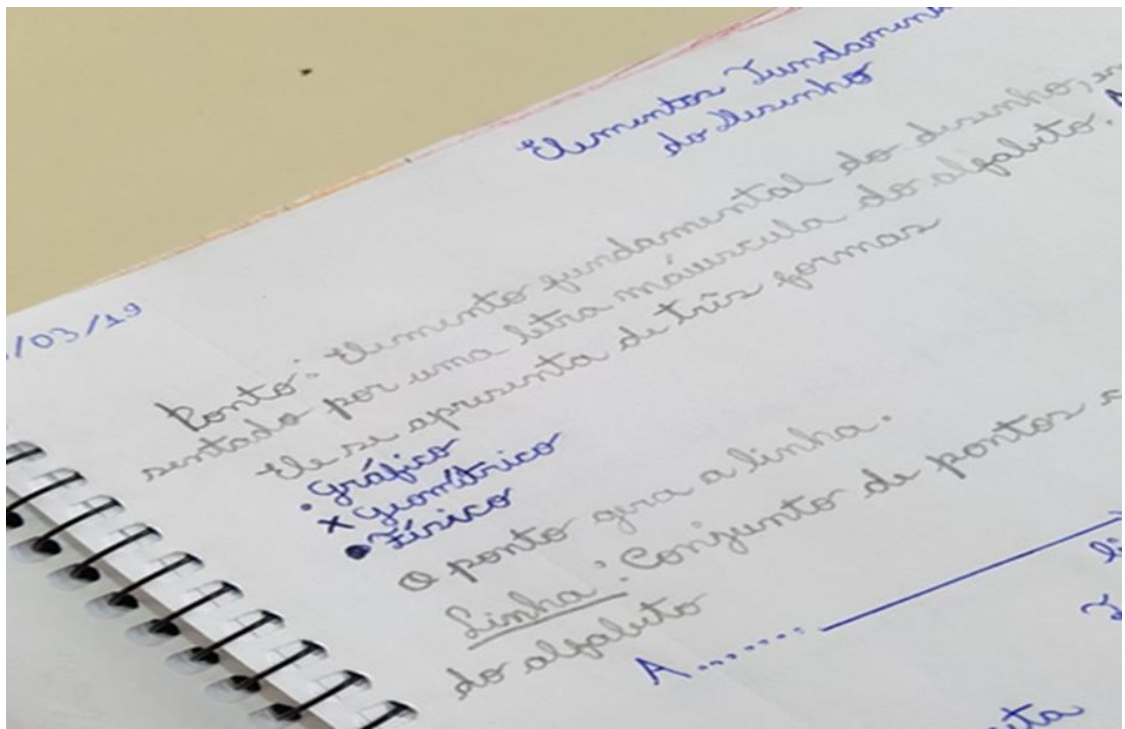 Elementos Fundament
do desenho
/03/19
Ponto: Elemento fundamental do desenho,
sentado por uma letra maíuscula do alfabeto. A
Ele se apresenta de três formas
• Gráfico
x Geométrico
• Físico
O ponto gera a linha.
Linha: Conjunto de pontos
do alfabeto
A ........